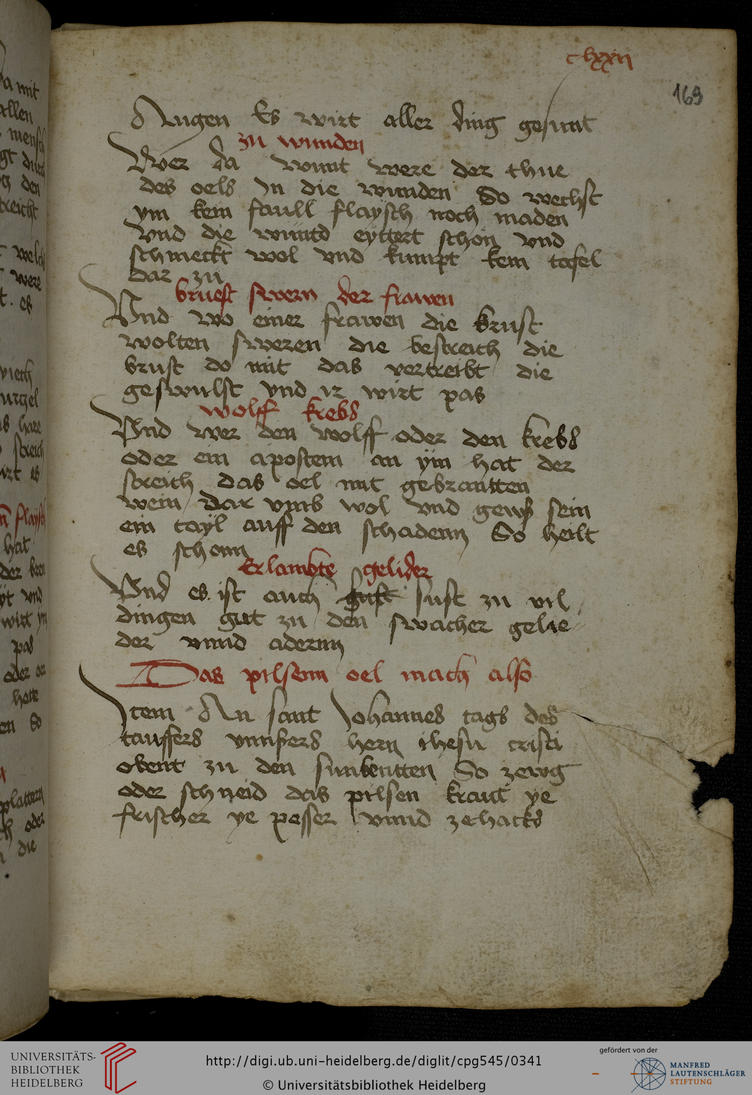 clxxii
169
Augen Es wirt aller ding gesunt
zu wunden
Wer da wunt were der thue
des oels In die wunden So wechst
ym kein faull flaysch noch maden
Vnd die wund eyttert schon vnd
schmeckt wol vnd kumpt kein
dar zu
bruest swern der frawen
Vnd wo einer frawen die brust
wolten sweren die bestreich die
brust do mit das vertreibt die
geswulst vnd ir wirt pas
wolff krebs
Vnd wer den wolff oder den krebs
oder ein apostem an ym hat der
streich das oel mit gebrantten
wein dar vmb wol vnd gewß sein
ein tayl auff den schadenn So heilt
es schonn
Erlambte gelider
Vnd es ist auch sust zu vil
dingen gut zu den swacher gelie
der vnnd adernn
Das pilsenn oel mach also
Item An sant Johannes tags des
tauffers vnnsers hern ihesu cristi
obent zu den sunbentten So zewg
oder schneid das pilsen kraut ye
frischer ye pesser vnnd zehacks
UNIVERSITÄTS-
BIBLIOTHEK
HEIDELBERG
http://digi.ub.uni-heidelberg.de/diglit/cpg545/0341
© Universitätsbibliothek Heidelberg
gefördert von der
MANFRED
LAUTENSCHLÄGER
STIFTUNG